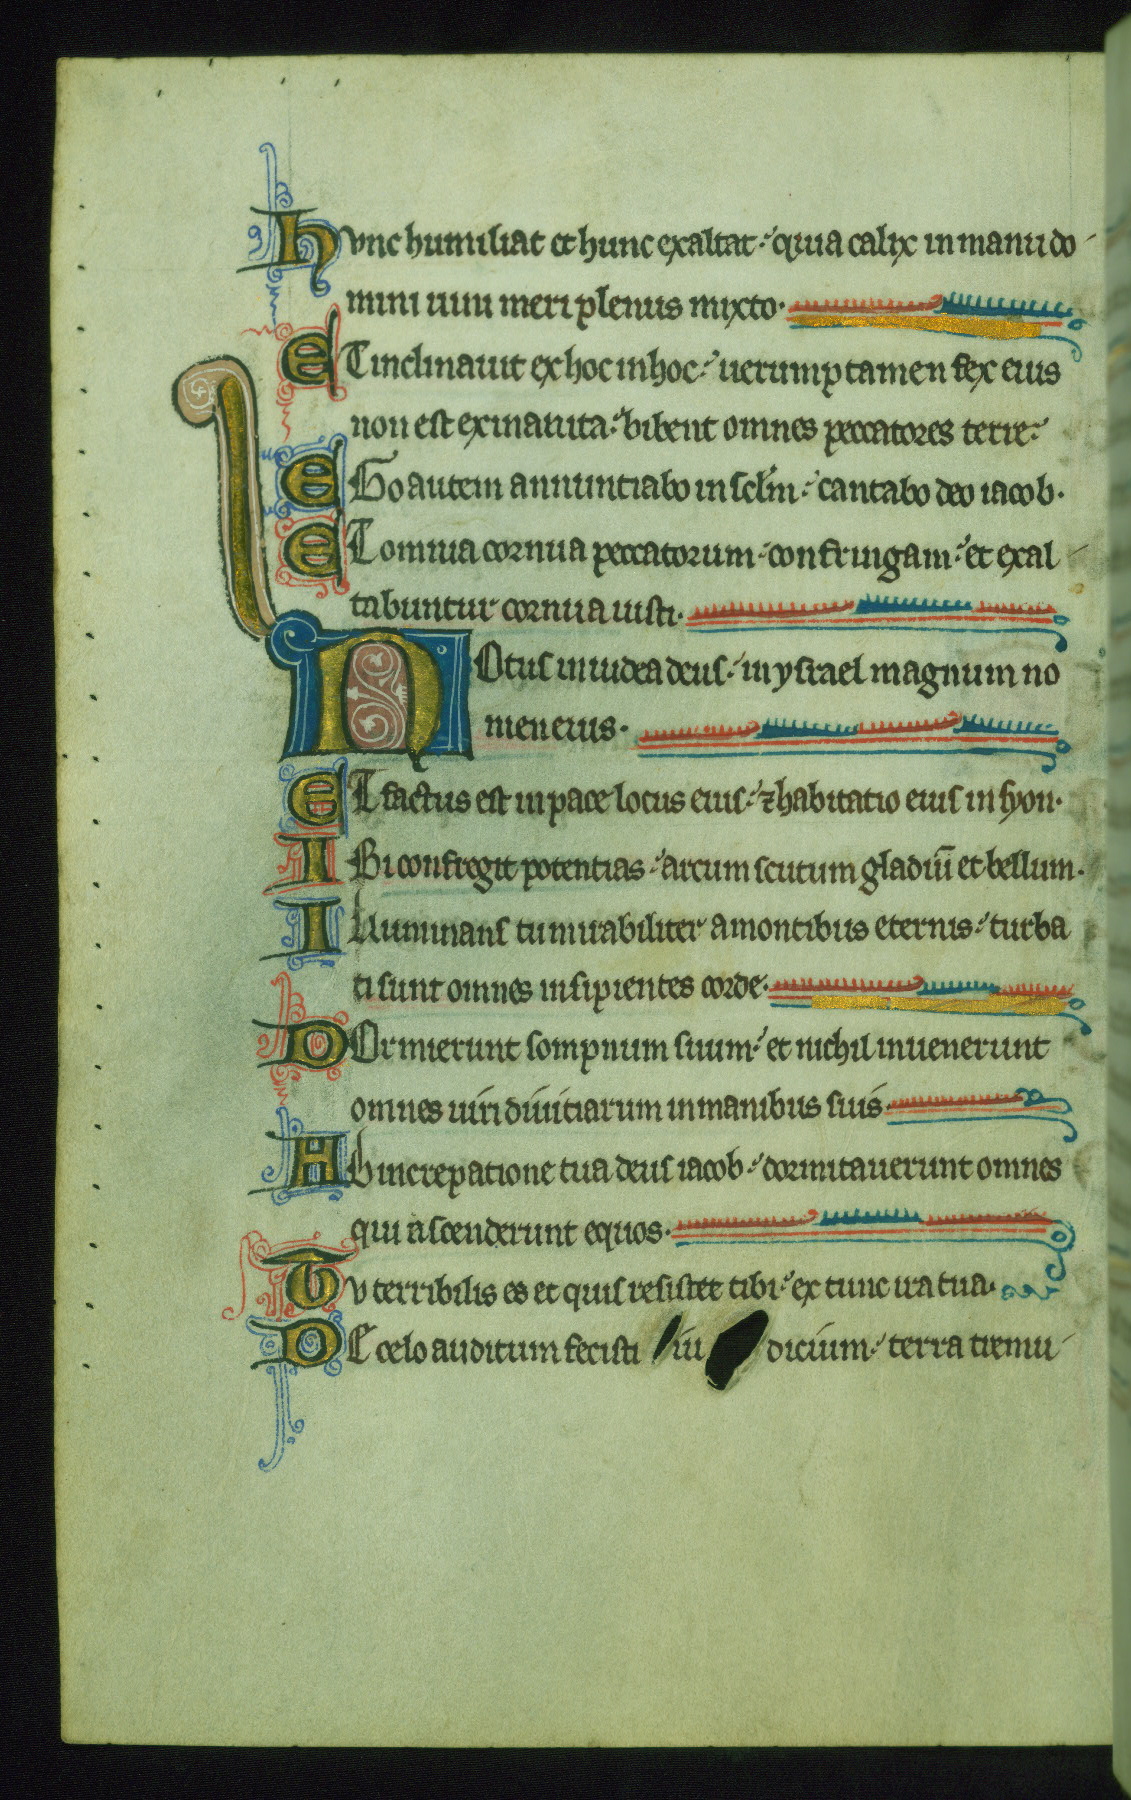 Hvnc humiliat et hunc exaltat quia calix in manu do
mini uini meri plenus mixto.
ET inclinauit ex hoc in hoc uerumptamen fex eius
non est exinanita bibent omnes peccatores terre
EGo autem annuntiabo in sclm cantabo deo iacob.
ET omnia cornua peccatorum confringam et exal
tabuntur cornua iusti.
NOtus in iudea deus in ysrael magnum no
men eius.
ET factus est in pace locus eius ⁊ habitatio eius in syon.
IBi confregit potentias arcum scutum gladiū et bellum.
Illuminans tu mirabiliter a montibus eternis turba
ti sunt omnes insipientes corde
DOrmierunt sompnum suum et nichil inuenerunt
omnes uiri diuitiarum in manibus suis
AB increpatione tua deus iacob dormitauerunt omnes
qui ascenderunt equos.
Tv terribilis es et quis resistet tibi ex tunc ira tua.
DE celo auditum fecisti iu dicium terra tremu